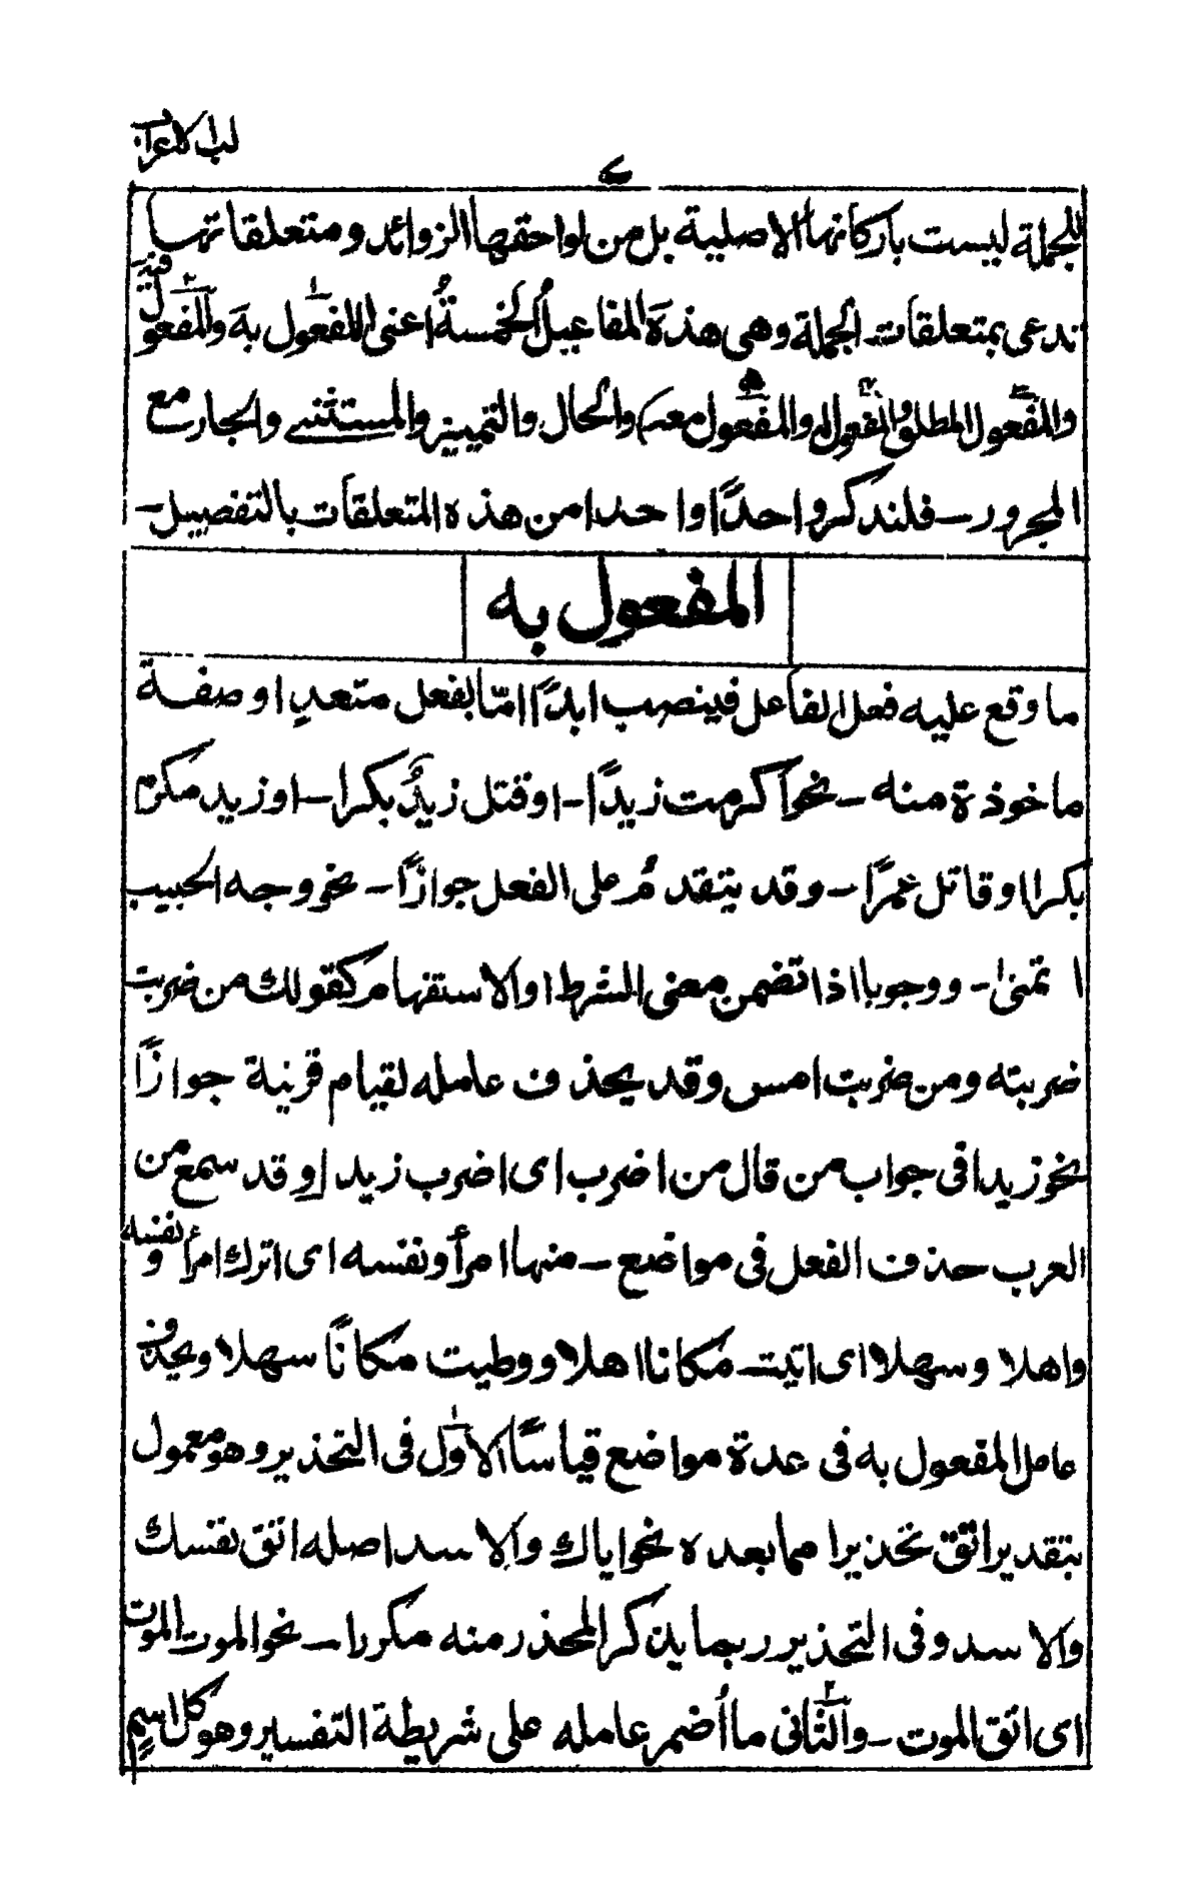 لب الاعراب
٧
للجملة ليست باركانها الاصلية بل من لواحقها الزوائد ومتعلقاتها
ندعى بمتعلقات الجملة وهى هذة المفاعيلُ الخمسةُ اعنى المفعول به والمفعول فيه
والمفعول المطلق والمفعول له والمفعول معه والحال والتمييز والمستثنى والجار مع
المجرور ــ فلنذكر واحدًا واحدا من هذه المتعلقات بالتفصيل ــ
المفعول به
ما وقع عليه فعل الفاعل فينصب ابدًا امّا بفعل متعدٍ او صفة
ماخوذة منه ــ نحو اكرمت زيدًا ــ او قتل زيدٌ بكرا ــ او زيد مكرم
بكرا او قاتل عمرًا ــ وقد يتقدم على الفعل جوازًا ــ نحو وجه الحبيب
اتمنى ــ ووجوبا اذا تضمن معنى الشرط او الاستفهام كقولك من ضربت
ضربته ومن ضربت امس وقد يحذف عامله لقيام قرينة جوازًا
نحو زيدا فى جواب من قال من اضرب اى اضرب زيدا وقد سمع من
العرب حذف الفعل فى مواضع ــ منها امرأ ونفسه اى اترك امرأ ونفسه
واهلا وسهلا اى اتيت مكانا اهلا ووطيت مكانًا سهلا ويحذف
عامل المفعول به فى عدة مواضع قياسًا الاول فى التحذير وهو معمول
بتقدير اتق تحذيرا مما بعده نحو اياك والاسد اصله اتق نفسك
والاسد وفى التحذير ربما يذكر المحذر منه مكررا ــ نحو الموت الموت
اى اتق الموت ــ والثانى ما اُضمر عامله على شريطة التفسير وهو كل اسمٍ